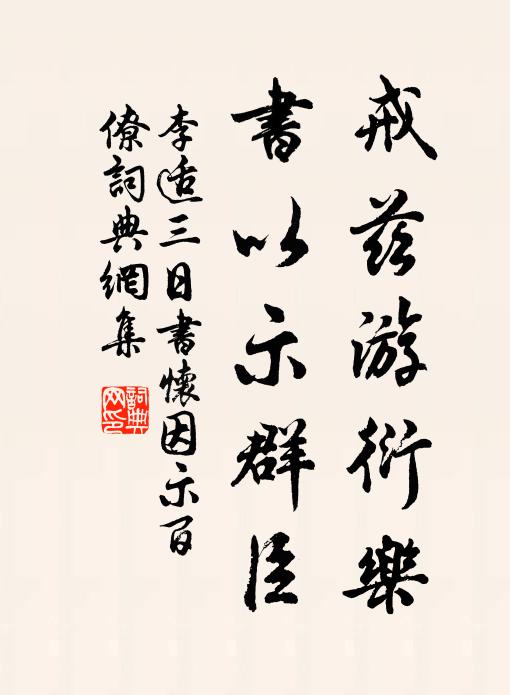 戒兹游衍樂
書以示群臣
李适三日書懷因示百
僚詞典網集
詞典
网印